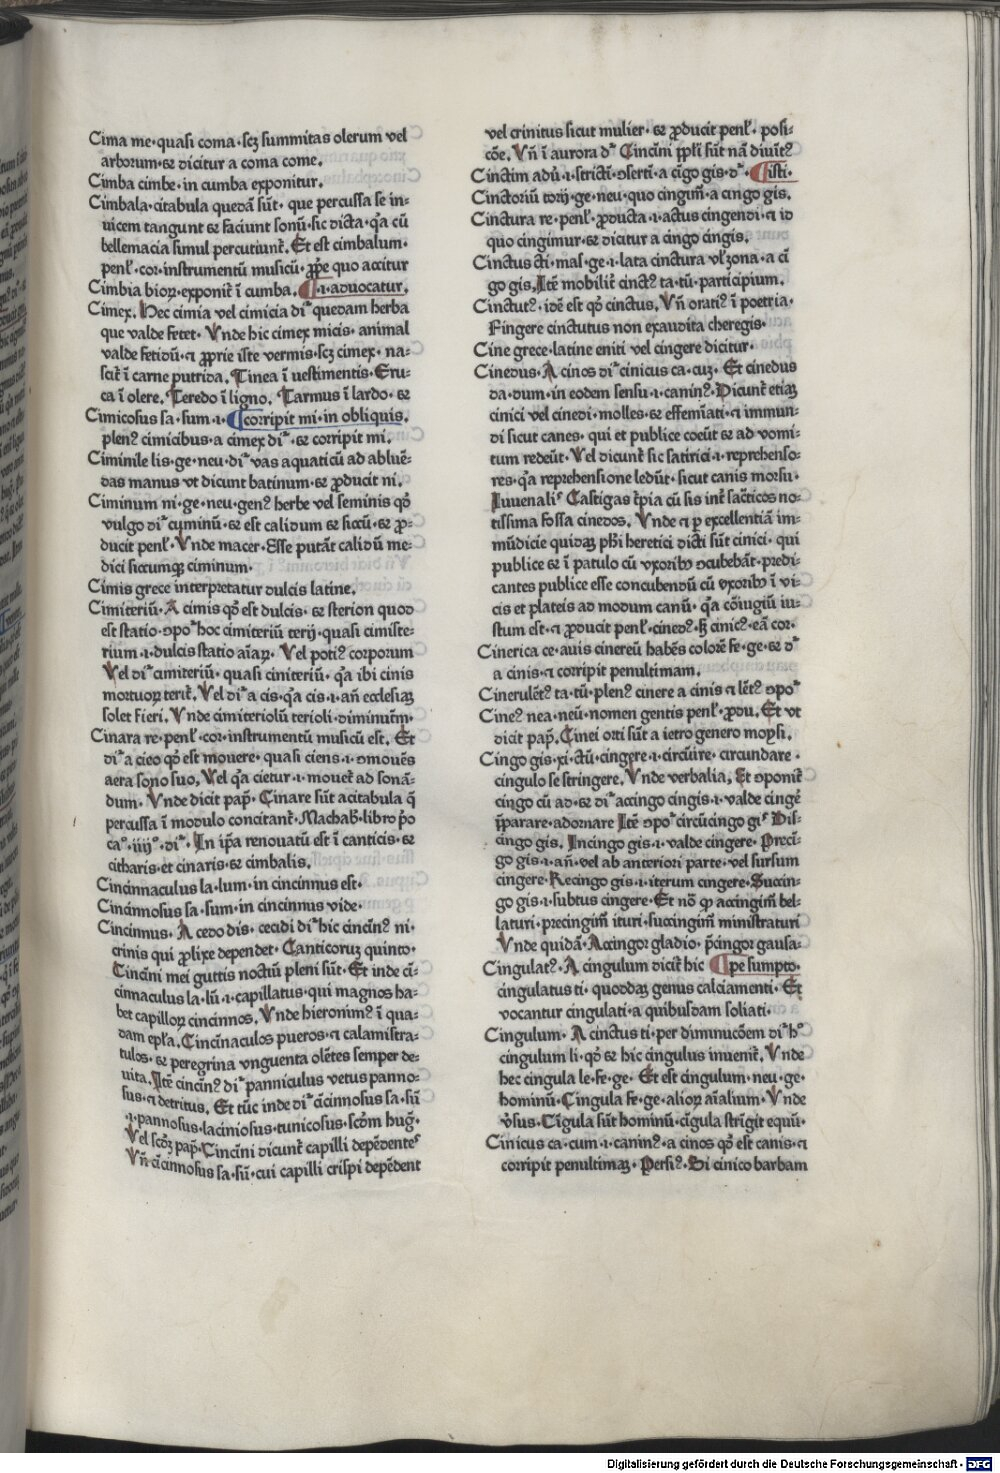 Cima me·quasi coma·scꝫ summitas olerum vel
arborum·⁊ dicitur a coma come.
Cimba cimbe·in cumba exponitur.
Cimbala·citabula quedã sũt·que percussa se in-
uicem tangunt ⁊ faciunt sonũ·sic dicta·q̃a cũ
bellemacia simul percutiunt᷑.Et est cimbalum·
penl̕·cor·instrumentũ musicũ·ꝓp̃e quo accitur
Cimbia bioꝝ·exponit᷑ ĩ cumba. ¶·i·aduocatur.
Cimex.Hec cimia vel cimicia di᷑ quedam herba
que valde fetet·Vnde hic cimex micis·animal
valde fetidũ·⁊ ꝓprie iste vermis·scꝫ cimex·na-
scit᷑ ĩ carne putrida.Tinea ĩ uestimentis·Eru-
ca ĩ olere.Teredo ĩ ligno.Tarmus ĩ lardo·⁊
Cimicosus sa·sum·i· ¶corripit mi·in obliquis.
plenꝰ cimicibus·a cimex di᷑·⁊ corripit mi.
Ciminile lis·ge·neu·di᷑ vas aquaticũ ad abluẽ-
das manus vt dicunt batinum·⁊ ꝓducit ni.
Ciminum ni·ge·neu·genꝰ herbe vel seminis qď
vulgo di᷑ cyminũ·⁊ est calidum ⁊ siccũ·⁊ ꝓ-
ducit penl̕·Vnde macer·Esse putãt calidũ me-
dici siccumqꝫ ciminum·
Cimis grece interpretatur dulcis latine.
Cimiteriũ·A cimis qď est dulcis·⁊ sterion quod
est statio·ꝯpo᷑ hoc cimiteriũ terij·quasi cimiste-
rium·i·dulcis statio aĩaꝝ·Vel potiꝰ corporum
Vel di᷑ cimiteriũ·quasi ciniteriũ·q̃a ibi cinis
mortuoꝝ terit᷑.Vel di᷑ a cis·q̃a cis·i·añ ecclesiaꝫ
solet fieri.Vnde cimiteriolũ terioli·diminutiũ·
Cinara re·penl̕·cor·instrumentũ musicũ est.Et
di᷑ a cieo qď est mouere·quasi ciens·i·ꝯmouẽs
aera sono suo.Vel q̃a cietur·i·mouet᷑ ad sonã-
dum·Vnde dicit pap̃·Cinare sũt acitabula q̃
percussa ĩ modulo concitant᷑·Machab̃·libro p̃o
ca°·iiij°·di᷑·In ip̃a renouatũ est ĩ canticis·⁊
citharis·et cinaris·⁊ cimbalis.
Cincinnaculus la·lum·in cincinnus est·
Cincinnosus sa·sum·in cincinnus vide·
Cincinnus·A cedo dis·cecidi di᷑ hic cincĩnꝰ ni·
crinis qui ꝓlixe dependet·Canticoruꝫ quinto·
Cincĩni mei guttis noctiũ pleni sũt·Et inde cĩ-
cinnaculus la·lũ·i·capillatus·qui magnos ha-
bet capilloꝝ cincinnos.Vnde hieronimꝰ ĩ qua-
dam ep̃la.Cincĩnaculos pueros·⁊ calamistra-
tulos·⁊ peregrina vnguenta olẽtes semper de-
uita.Itẽ cincĩnꝰ di᷑ panniculus vetus panno-
sus·⁊ detritus.Et tũc inde di᷑ cĩcinnosus sa·sũ
·i·pannosus·laciniosus·tunicosus·scďm hug̃·
Vel scďꝫ pap̃·Cincĩni dicunt᷑ capilli depẽdentes
Vñ cĩcinnosus sa·sũ·cui capilli crispi depẽdent
vel crinitus sicut mulier·⁊ ꝓducit penl̕·posi-
cõe.Vñ ĩ aurora d᷑ Cincĩni ꝓpl̕i sũt nã diuĩtꝰ
Cinctim adũ·i·stricti᷑ ꝯserti᷑·a cĩgo gis·d᷑· ¶isti·
Cinctoriũ torij·ge·neu·quo cingim᷑·a cingo gis.
Cinctura re·penl̕·ꝓducta·i·actus cingendi·⁊ id
quo cingimur·⁊ dicitur a cingo cingis.
Cinctus cti·mas·ge·i·lata cinctura vl̕ zona·a cĩ
go gis.Itẽ mobilit᷑ cinctꝰ ta·tũ·participium.
Cinctutꝰ·idẽ est qď cinctus.Vñ oratiꝰ ĩ poetria·
Fingere cinctutus non exaudita cheregis·
Cine grece·latine eniti vel cingere dicitur·
Cinedus·A cinos di᷑ cinicus ca·cuꝫ·Et cinedus
da·dum·in eodem sensu·i·caninꝰ·Dicunt᷑ etiaꝫ
cinici vel cinedi·molles·⁊ effemĩati·⁊ immun-
di sicut canes·qui et publice coeũt ⁊ ad vomi-
tum redeũt·Vel dicunt᷑ sic satirici·i·reprehenso-
res·q̃a reprehensione ledũt·sicut canis morsu·
Iuuenalis Castigas t᷑pia cũ sis int᷑ sac᷑ticos no-
tissima fossa cinedos.Vnde ⁊ p̱ excellentiã im-
mũdicie quidaꝫ phĩ heretici dicti sũt cinici·qui
publice ⁊ ĩ patulo cũ vxoribꝫ ꝯcubebãt·predi-
cantes publice esse concubendũ cũ vxoribꝫ ĩ vi-
cis et plateis ad modum canũ·q̃a cõiugiũ iu-
stum est·⁊ ꝓducit penl̕·cinedꝰ·sꝫ cinicꝰ·eã cor·
Cinerica ce·auis cinereũ habẽs colorẽ fe·ge·⁊ d᷑
a cinis·⁊ corripit penultimam.
Cinerulẽtꝰ ta·tũ·plenꝰ cinere a cinis ⁊ lẽtꝰ ꝯpo᷑
Cineꝰ nea·neũ·nomen gentis penl̕·ꝓdu.Et vt
dicit pap̃.Cinei orti sũt a ietro genero moysi.
Cingo gis·xi·ctũ·cingere·i·circũire·circundare·
cingulo se stringere.Vnde verbalia.Et ꝯponit᷑
cingo cũ ad·⁊ di᷑ accingo cingis·i·valde cingẽ
p̃parare·adornare Itẽ ꝯpo᷑ circũcingo gis Dis-
cingo gis.Incingo gis·i·valde cingere·Precĩ-
go gis·i·añ·vel ab anteriori parte·vel sursum
cingere·Recingo gis·i·iterum cingere·Succin-
go gis·i·subtus cingere·Et nõ ꝙ accingim᷑ bel-
laturi·precingim᷑ ituri·succingim᷑ ministraturi
Vnde quidã·Accingor gladio·p̃cingor gausa-
Cingulatꝰ·A cingulum dicit᷑ hic ¶pe sumpto·
cingulatus ti·quoddaꝫ genus calciamenti·Et
vocantur cingulati·a quibusdam soliati·
Cingulum·A cinctus ti·per diminucõem di᷑ h°
cingulum li·qď ⁊ hic cingulus inuenit᷑.Vnde
hec cingula le·fe·ge·Et est cingulum·neu·ge·
hominũ·Cingula fe·ge·alioꝝ aĩalium·Vnde
v᷑sus·Cĩgula sũt hominũ·cĩgula strĩgit equũ·
Cinicus ca·cum·i·caninꝰ·a cinos qď est canis·⁊
corripit penultimaꝫ·Persiꝰ·Si cinico barbam
Digitalisierung gefördert durch die Deutsche Forschungsgemeinschaft - DFG